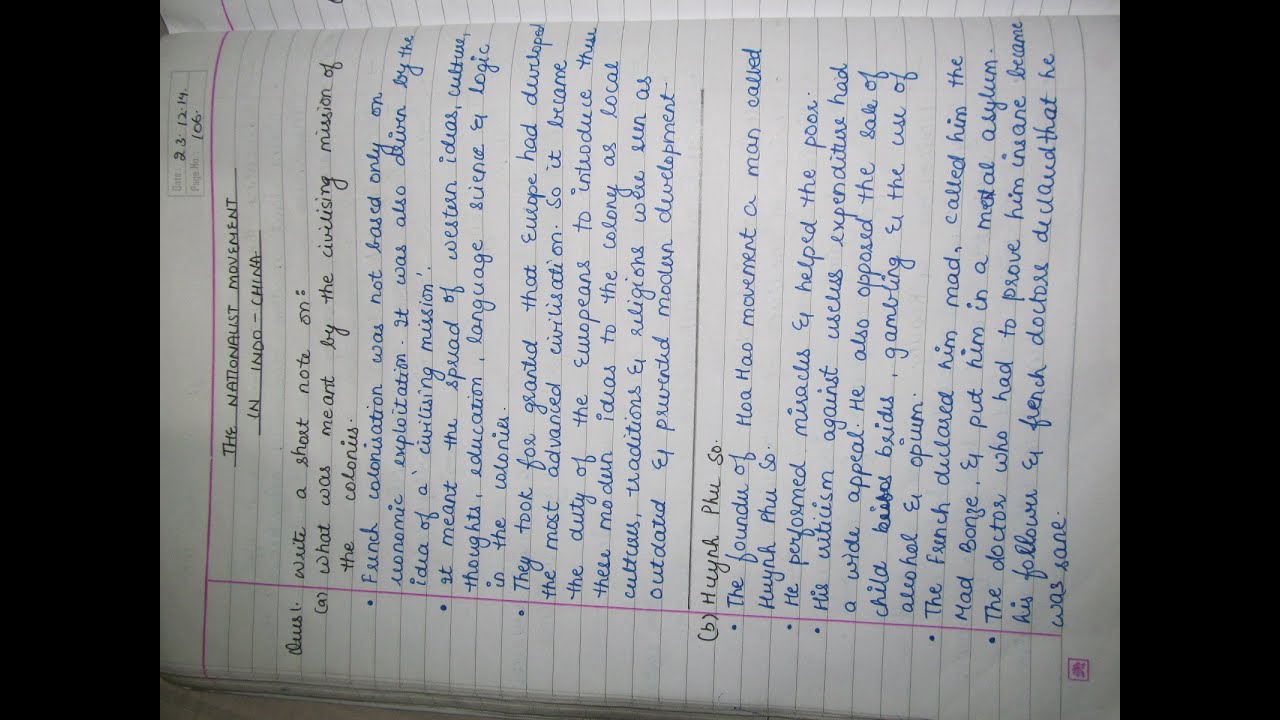 Date : 23.12.14.
Page No. 106.
THE NATIONALIST MOVEMENT
IN INDO-CHINA
Ques1. Write a short note on:
(a) What was meant by the civilising mission of
the colonies.
• French colonisation was not based only on
economic exploitation. It was also driven by the
idea of a 'civilising mission'.
• It meant the spread of western ideas, culture,
thoughts, education, language science & logic
in the colonies.
• They took for granted that Europe had developed
the most advanced civilisation. So it became
the duty of the Europeans to introduce these
these modern ideas to the colony as local
cultures, traditions & religions were seen as
outdated & prevented modern development
(b) Huynh Phu So.
• The founder of Hoa Hao movement a man called
Huynh Phu So.
• He performed miracles & helped the poor.
• His criticism against useless expenditure had
a wide appeal. He also opposed the sale of
child brides, gambling & the use of
alcohol & opium.
• The French declared him mad, called him the
Mad Bonze, & put him in a mental asylum.
• The doctor who had to prove him insane became
his follower & french doctors declared that he
was sane.